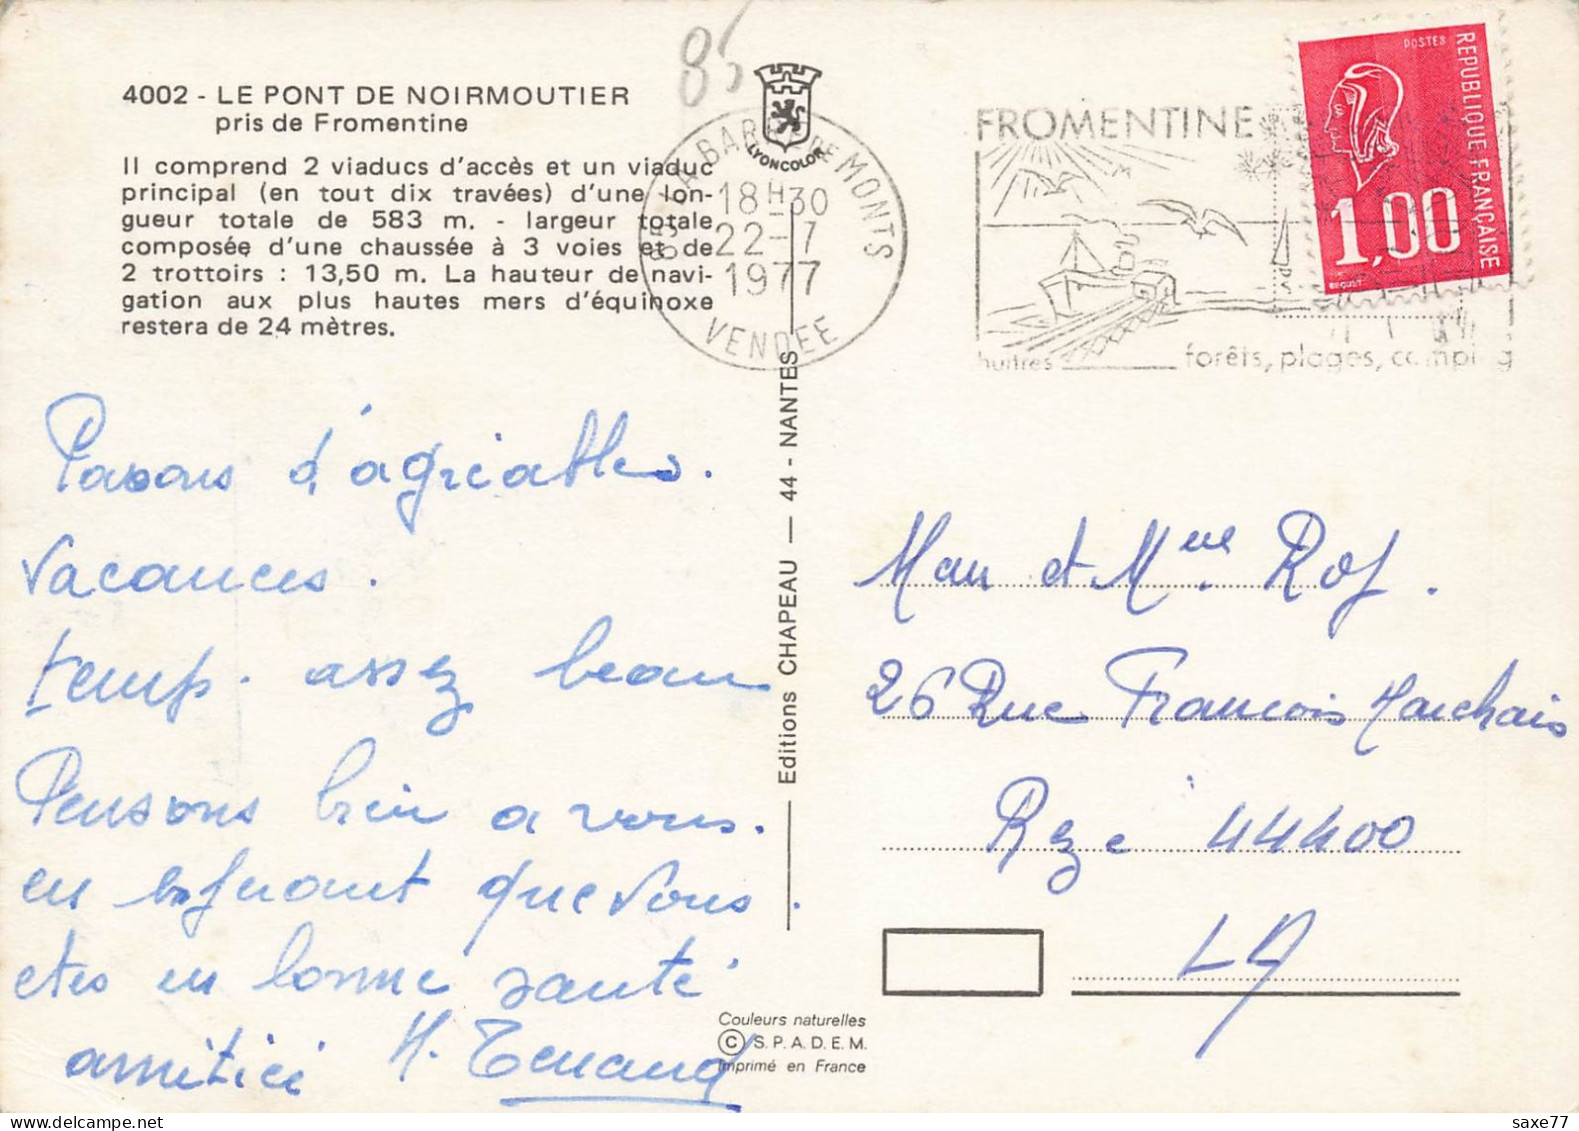 85
4002 - LE PONT DE NOIRMOUTIER
pris de Fromentine
Il comprend 2 viaducs d'accès et un viaduc
principal (en tout dix travées) d'une lon-
gueur totale de 583 m. - largeur totale
composée d'une chaussée à 3 voies et de
2 trottoirs : 13,50 m. La hauteur de navi-
gation aux plus hautes mers d'équinoxe
restera de 24 mètres.
LYONCOLOR
LA BARRE DE MONTS
18H30
22-7
1977
VENDEE
FROMENTINE
huitres forêts, plages, camping
POSTES
REPUBLIQUE FRANÇAISE
1,00
BEQUET
Pasons d'agréables.
vacances.
temps. assez beau
Pensons bien a vous.
en esperant que vous.
etes en bonne santé
amitiés
Editions CHAPEAU — 44 - NANTES
Couleurs naturelles
© S.P.A.D.E.M.
Imprimé en France
et Mme. Rof.
26 Rue Francois Marchais
Reze 44400
LA
saxe77